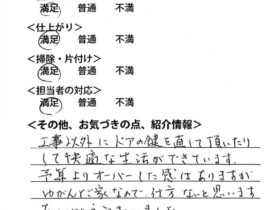 満足 普通 不満
<仕上がり>
満足 普通 不満
<掃除・片付け>
満足 普通 不満
<担当者の対応>
満足 普通 不満
<その他、お気づきの点、紹介情報>
工事以外にドアの鍵を直して頂いたり
して快適な生活ができています。
予算よりオーバーした感はありますが
ゆがんだ家なので仕方ないと思います